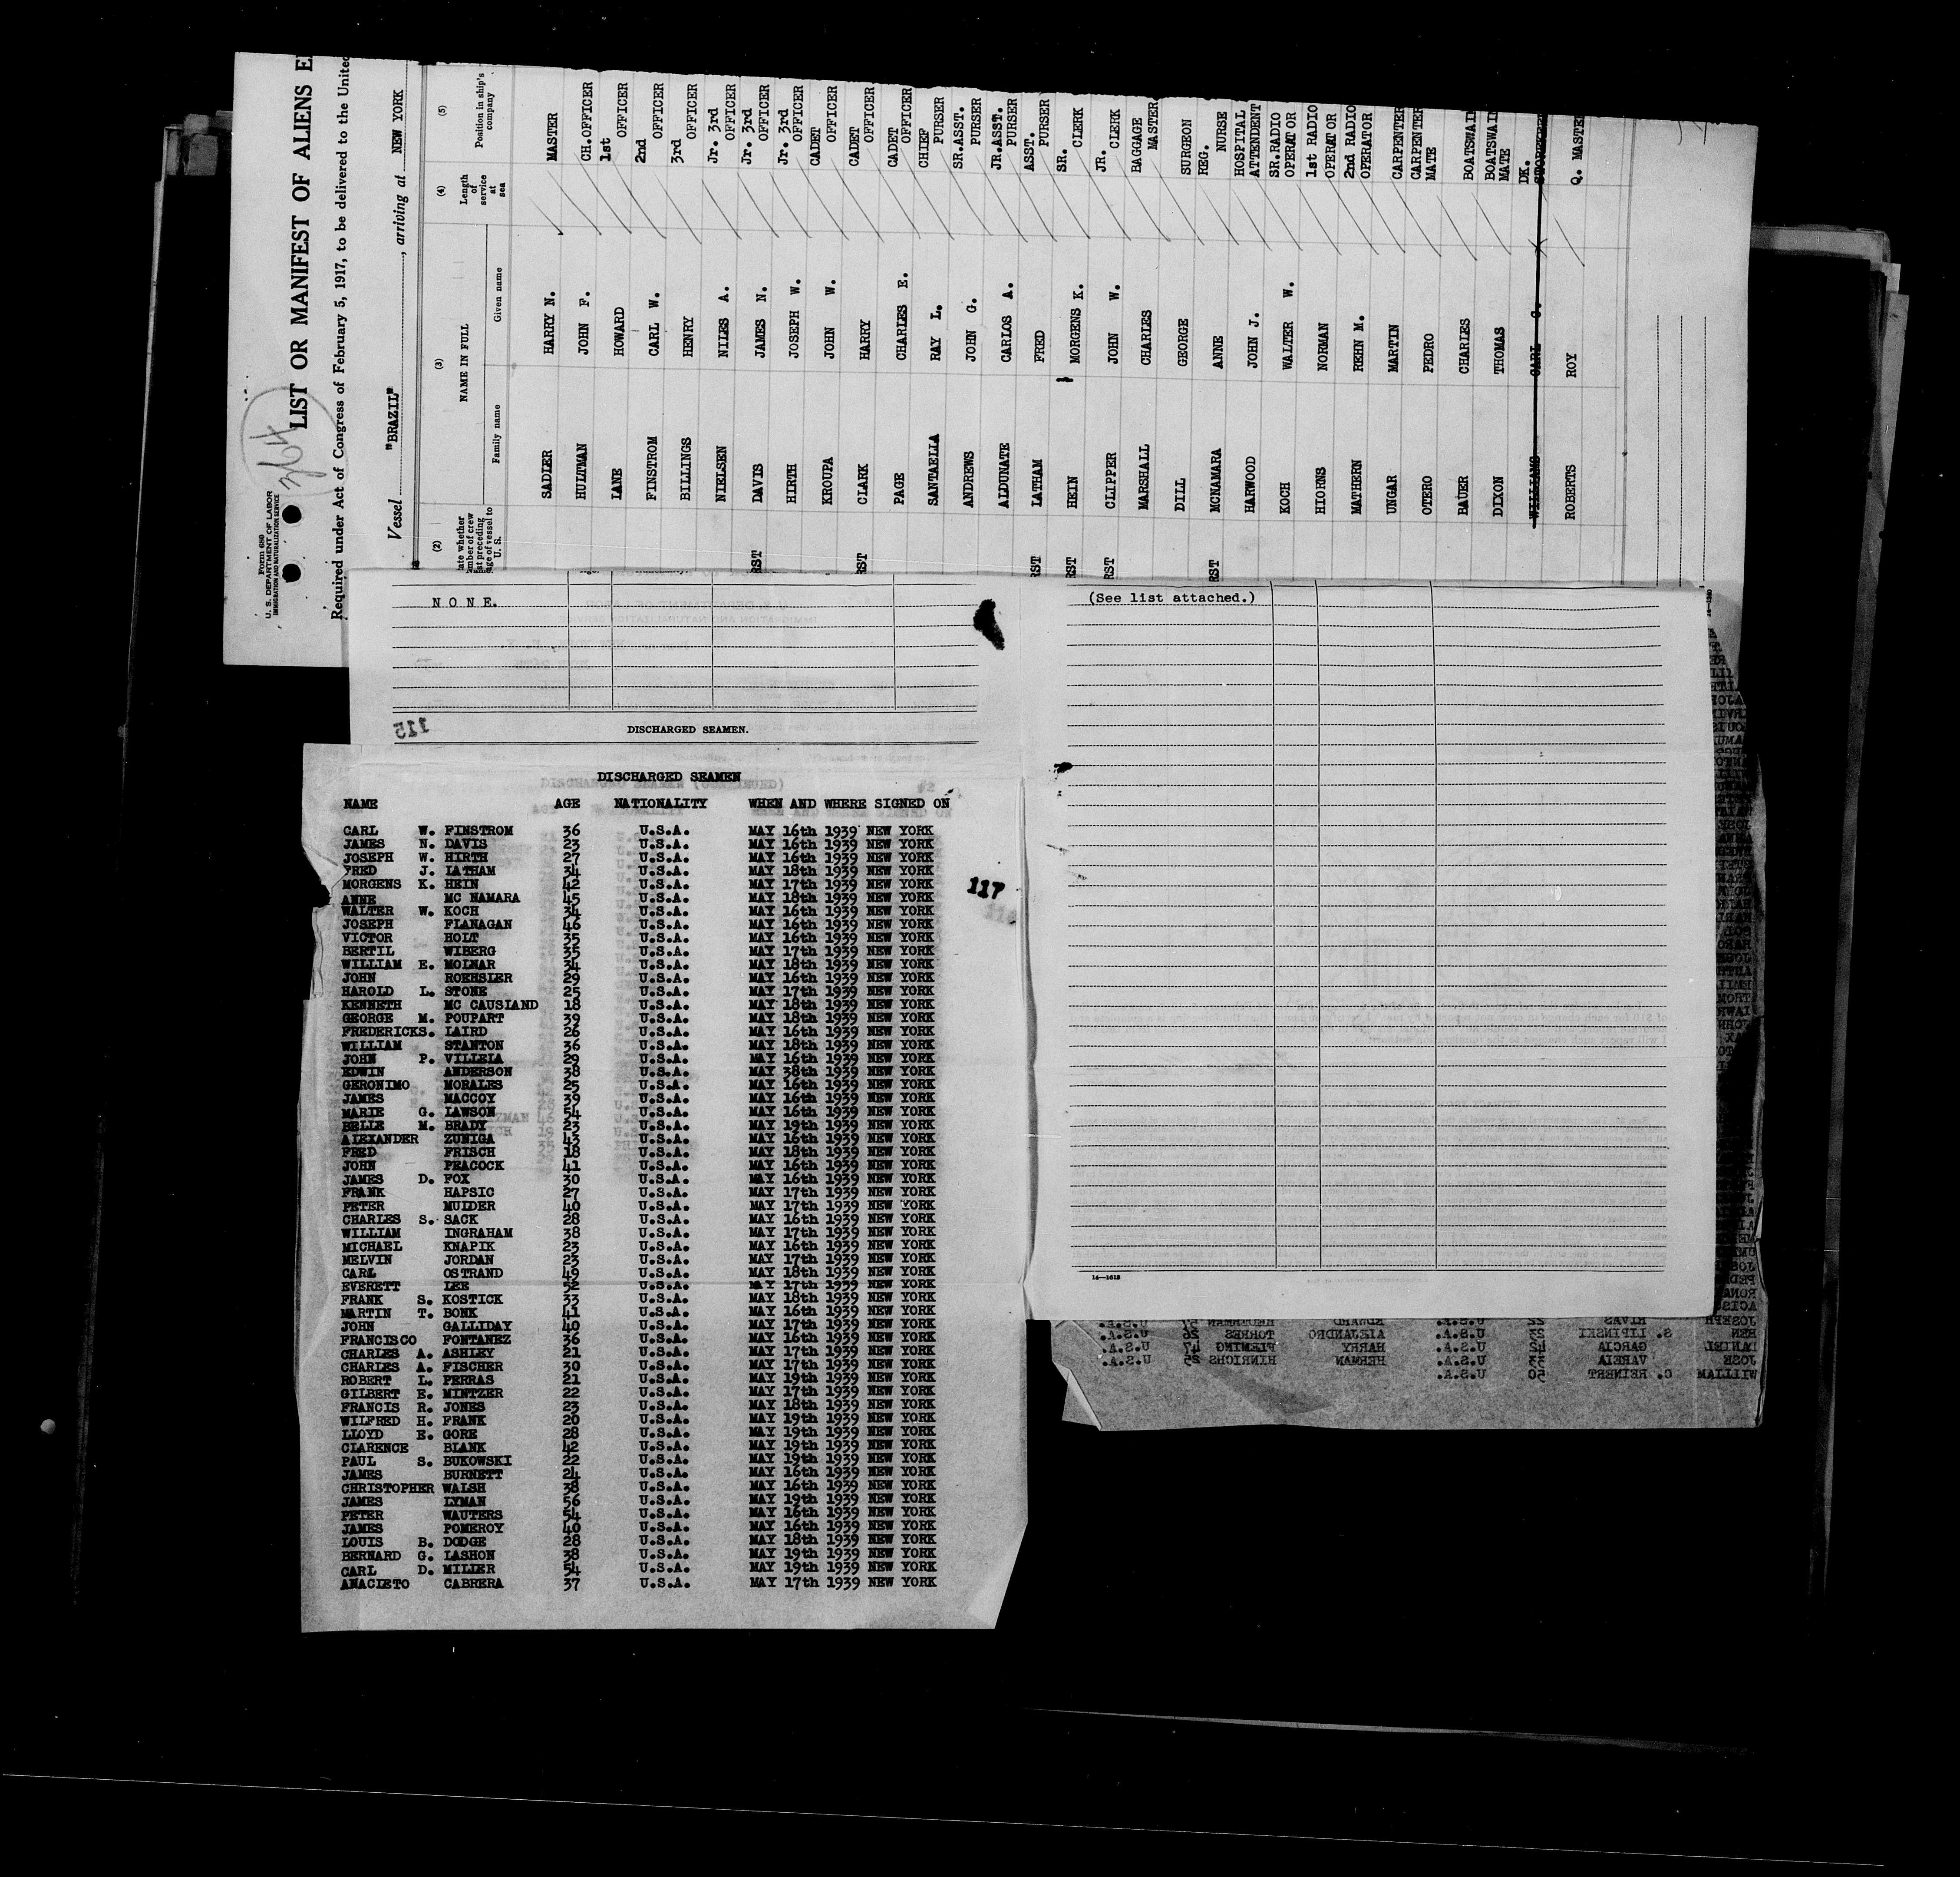 Form 680
U. S. DEPARTMENT OF LABOR
IMMIGRATION AND NATURALIZATION SERVICE
364
LIST OR MANIFEST OF ALIENS E
Required under Act of Congress of February 5, 1917, to be delivered to the United
Vessel "BRAZIL", arriving at NEW YORK
(2) (3) (4) (5)
NAME IN FULL
Family name Given name
Length of service at sea
Position in ship's company
SADLER HARRY N. MASTER
HULTMAN JOHN F. CH.OFFICER
LANE HOWARD 1st OFFICER
FINSTROM CARL W. 2nd OFFICER
BILLINGS HENRY 3rd OFFICER
NIELSEN NILES A. Jr. 3rd OFFICER
RST DAVIS JAMES N. Jr. 3rd OFFICER
HIRTH JOSEPH W. Jr. 3rd OFFICER
KROUPA JOHN W. CADET OFFICER
RST CLARK HARRY CADET OFFICER
PAGE CHARLES E. CADET OFFICER
SANTAELLA RAY L. CHIEF PURSER
ANDREWS JOHN G. SR.ASST. PURSER
ALDUNATE CARLOS A. JR.ASST. PURSER
RST LATHAM FRED ASST. PURSER
RST HEIN MORGENS K. SR. CLERK
RST CLIPPER JOHN W. JR. CLERK
MARSHALL CHARLES BAGGAGE MASTER
DILL GEORGE SURGEON
RST MCNAMARA ANNE REG. NURSE
HARWOOD JOHN J. HOSPITAL ATTENDENT
KOCH WALTER W. SR.RADIO OPERATOR
HIORNS NORMAN 1st RADIO OPERATOR
MATHERN REHN M. 2nd RADIO OPERATOR
UNGAR MARTIN CARPENTER
OTERO PEDRO CARPENTER MATE
BAUER CHARLES BOATSWAIN
DIXON THOMAS BOATSWAIN MATE
WILLIAMS CARL G. DK.
ROBERTS ROY Q. MASTER
NONE.
(See list attached.)
115
DISCHARGED SEAMEN.
DISCHARGED SEAMEN
NAME AGE NATIONALITY WHEN AND WHERE SIGNED ON
CARL W. FINSTROM 36 U.S.A. MAY 16th 1939 NEW YORK
JAMES N. DAVIS 23 U.S.A. MAY 16th 1939 NEW YORK
JOSEPH W. HIRTH 27 U.S.A. MAY 16th 1939 NEW YORK
FRED J. LATHAM 34 U.S.A. MAY 18th 1939 NEW YORK
MORGENS K. HEIN 42 U.S.A. MAY 17th 1939 NEW YORK
ANNE MC NAMARA 45 U.S.A. MAY 18th 1939 NEW YORK
WALTER W. KOCH 34 U.S.A. MAY 16th 1939 NEW YORK
JOSEPH FLANAGAN 46 U.S.A. MAY 16th 1939 NEW YORK
VICTOR HOLT 35 U.S.A. MAY 16th 1939 NEW YORK
BERTIL WIBERG 35 U.S.A. MAY 17th 1939 NEW YORK
WILLIAM E. MOLNAR 34 U.S.A. MAY 18th 1939 NEW YORK
JOHN ROEHSLER 29 U.S.A. MAY 16th 1939 NEW YORK
HAROLD L. STONE 25 U.S.A. MAY 17th 1939 NEW YORK
KENNETH MC CAUSLAND 18 U.S.A. MAY 18th 1939 NEW YORK
GEORGE M. POUPART 39 U.S.A. MAY 18th 1939 NEW YORK
FREDERICKS. LAIRD 26 U.S.A. MAY 16th 1939 NEW YORK
WILLIAM STANTON 36 U.S.A. MAY 18th 1939 NEW YORK
JOHN P. VILLELA 29 U.S.A. MAY 16th 1939 NEW YORK
EDWIN ANDERSON 38 U.S.A. MAY 38th 1939 NEW YORK
GERONIMO MORALES 25 U.S.A. MAY 16th 1939 NEW YORK
JAMES MACCOY 39 U.S.A. MAY 16th 1939 NEW YORK
MARIE G. LAWSON 54 U.S.A. MAY 16th 1939 NEW YORK
BELLE M. BRADY 23 U.S.A. MAY 19th 1939 NEW YORK
ALEXANDER ZUNIGA 43 U.S.A. MAY 16th 1939 NEW YORK
FRED FRISCH 18 U.S.A. MAY 18th 1939 NEW YORK
JOHN PEACOCK 41 U.S.A. MAY 16th 1939 NEW YORK
JAMES D. FOX 30 U.S.A. MAY 16th 1939 NEW YORK
FRANK HAPSIC 27 U.S.A. MAY 17th 1939 NEW YORK
PETER MULDER 40 U.S.A. MAY 17th 1939 NEW YORK
CHARLES S. SACK 28 U.S.A. MAY 16th 1939 NEW YORK
WILLIAM INGRAHAM 38 U.S.A. MAY 17th 1939 NEW YORK
MICHAEL KNAPIK 23 U.S.A. MAY 16th 1939 NEW YORK
MELVIN JORDAN 23 U.S.A. MAY 17th 1939 NEW YORK
CARL OSTRAND 49 U.S.A. MAY 18th 1939 NEW YORK
EVERETT LEE 52 U.S.A. MAY 17th 1939 NEW YORK
FRANK S. KOSTICK 33 U.S.A. MAY 18th 1939 NEW YORK
MARTIN T. BONK 41 U.S.A. MAY 16th 1939 NEW YORK
JOHN GALLIDAY 40 U.S.A. MAY 17th 1939 NEW YORK
FRANCISCO FONTANEZ 36 U.S.A. MAY 16th 1939 NEW YORK
CHARLES A. ASHLEY 21 U.S.A. MAY 17th 1939 NEW YORK
CHARLES A. FISCHER 30 U.S.A. MAY 17th 1939 NEW YORK
ROBERT L. PERRAS 21 U.S.A. MAY 19th 1939 NEW YORK
GILBERT E. MINTZER 22 U.S.A. MAY 17th 1939 NEW YORK
FRANCIS R. JONES 23 U.S.A. MAY 18th 1939 NEW YORK
WILFRED H. FRANK 20 U.S.A. MAY 19th 1939 NEW YORK
LLOYD E. GORE 28 U.S.A. MAY 19th 1939 NEW YORK
CLARENCE BLANK 42 U.S.A. MAY 19th 1939 NEW YORK
PAUL S. BUKOWSKI 22 U.S.A. MAY 19th 1939 NEW YORK
JAMES BURNETT 24 U.S.A. MAY 16th 1939 NEW YORK
CHRISTOPHER WALSH 38 U.S.A. MAY 16th 1939 NEW YORK
JAMES LYMAN 56 U.S.A. MAY 19th 1939 NEW YORK
PETER WAUTERS 54 U.S.A. MAY 16th 1939 NEW YORK
JAMES POMEROY 40 U.S.A. MAY 16th 1939 NEW YORK
LOUIS B. DODGE 28 U.S.A. MAY 18th 1939 NEW YORK
BERNARD G. LASHON 38 U.S.A. MAY 19th 1939 NEW YORK
CARL D. MILLER 54 U.S.A. MAY 19th 1939 NEW YORK
ANACLETO CABRERA 37 U.S.A. MAY 17th 1939 NEW YORK
117
JOSEPH RIVAS 22 U.S.A.
BEN S. LIPINSKI 23 U.S.A. ALEJANDRO TORRES 26 U.S.A.
DANIEL GARCIA 42 U.S.A. HARRY FLEMING 47 U.S.A.
JOSE VARELA 33 U.S.A. HERMAN HINRICHS 25 U.S.A.
WILLIAM C. REINERT 50 U.S.A.